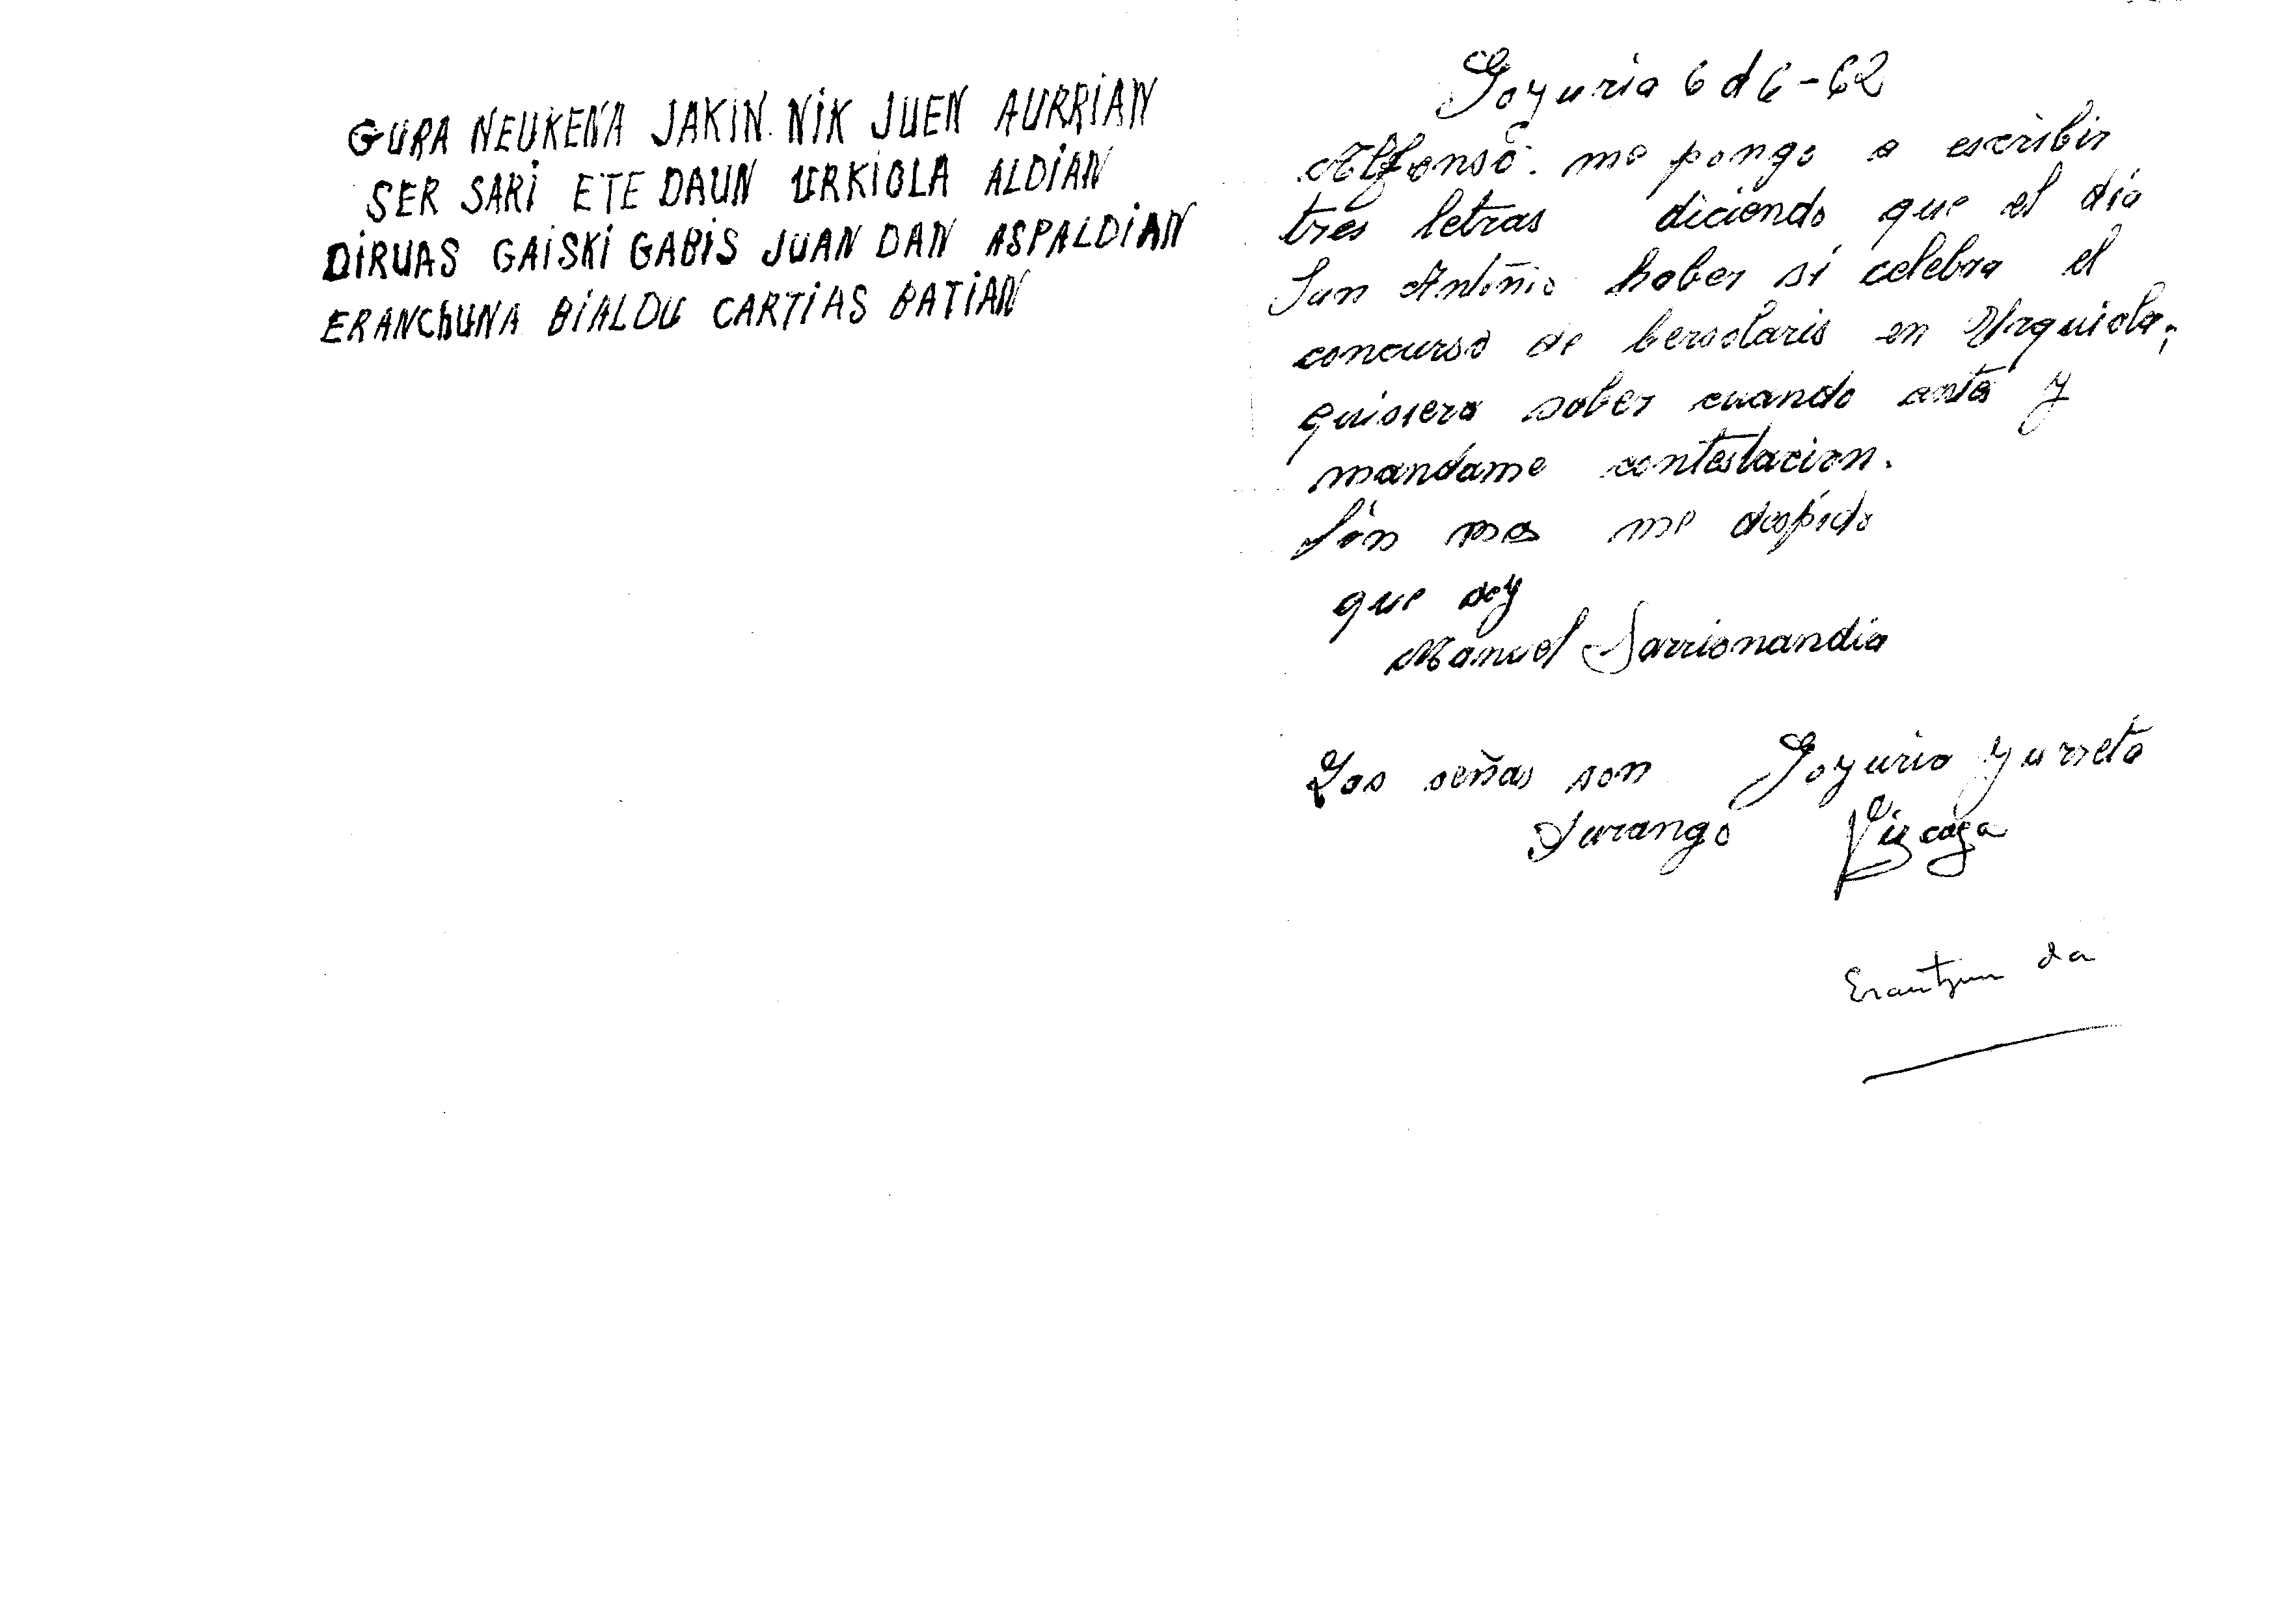 GURA NEUKENA JAKIN. NIK JUEN AURRIAN
SER SARI ETE DAUN URKIOLA ALDIAN
DIRUAS GAISKI GABIS JUAN DAN ASPALDIAN
ERANCHUNA BIALDU CARTIAS BATIAN
Goyuria 6 d 6-62
Alfonso. me pongo a escribir
tres letras diciendo que el dia
San Antonio haber si celebra el
concurso de bersolaris en Urquiola;
quisiera saber cuando antes y
mandame contestacion.
Sin mas me despido
que soy
Manuel Sarrionandia
Las señas son Goyuria Yurreta
Durango Vizcaya
Erantzun da